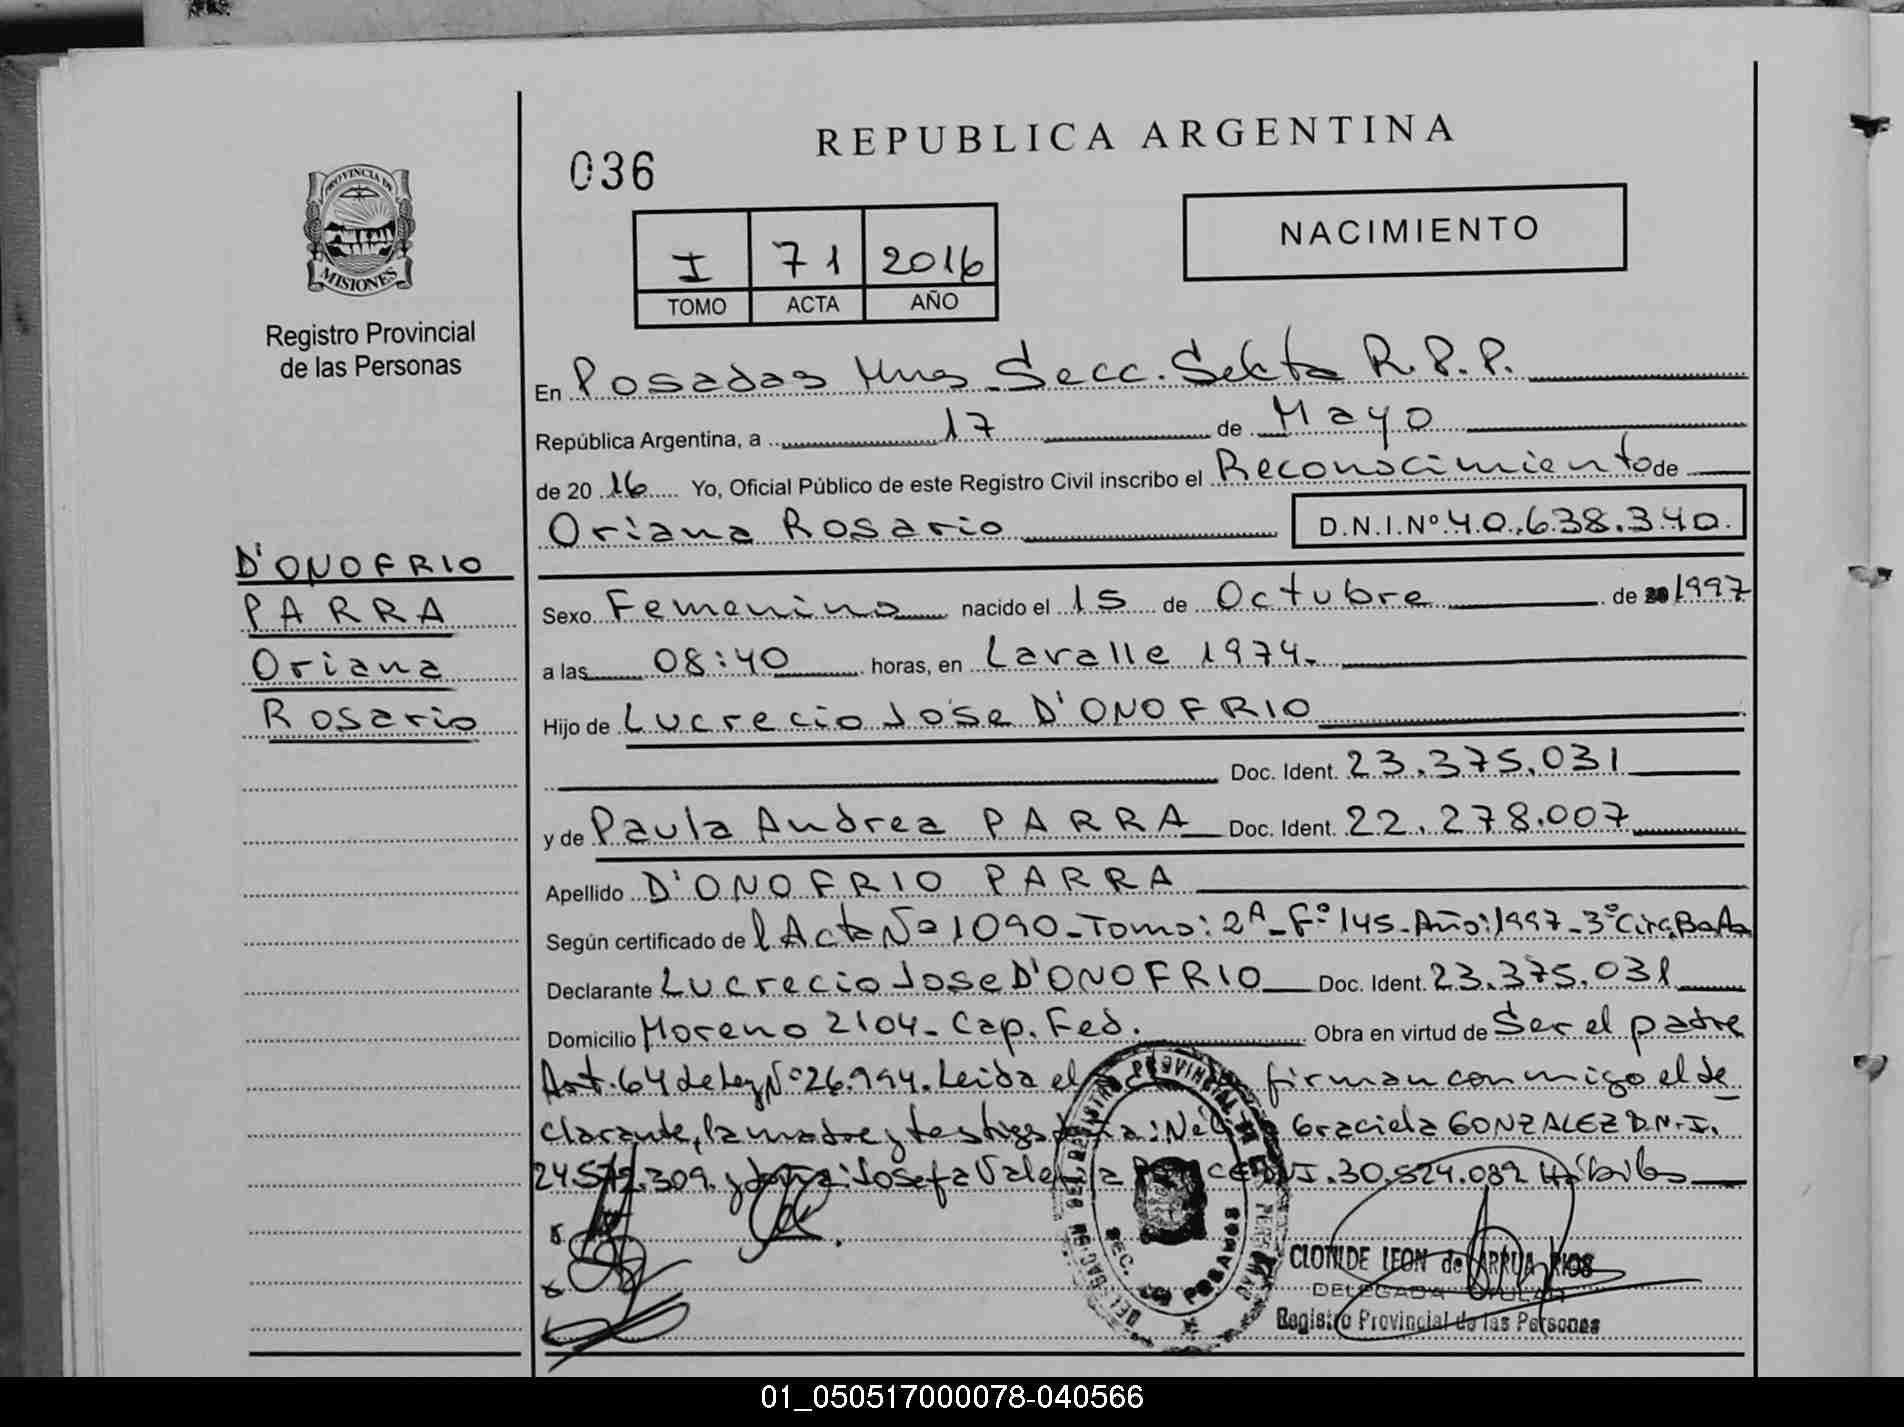 REPUBLICA ARGENTINA
036
PROVINCIA DE
MISIONES
Registro Provincial
de las Personas
I 71 2016
TOMO ACTA AÑO
NACIMIENTO
En Posadas Mns Secc. Sexta R.P.P.
República Argentina, a 17 de Mayo
de 2016 Yo, Oficial Público de este Registro Civil inscribo el Reconocimiento de
Oriana Rosario D.N.I.Nº 40.638.340
D'ONOFRIO
PARRA
Oriana
Rosario
Sexo Femenino nacido el 15 de Octubre de 1997
a las 08:40 horas, en Lavalle 1974.
Hijo de Lucrecio José D'ONOFRIO
Doc. Ident. 23.375.031
y de Paula Andrea PARRA Doc. Ident. 22.278.007
Apellido D'ONOFRIO PARRA
Según certificado de l Acta Nº 1090-Tomo: 2A-Fº 145-Año:1997-3º Circ.
Declarante Lucrecio Jose D'ONOFRIO Doc. Ident. 23.375.031
Domicilio Moreno 2104- Cap. Fed. Obra en virtud de Ser el padre
Art. 64 de Ley Nº 26.994. Leida el firman conmigo el de
clarante, la madre y testigos Graciela GONZALEZ D.N.I.
24.572.309. y Josefa DNI.30.524.082 Hábiles
SEC. POSADAS
CLOTILDE LEON de ARRUA RIOS
DELEGADA TITULAR
Registro Provincial de las Personas
01_050517000078-040566